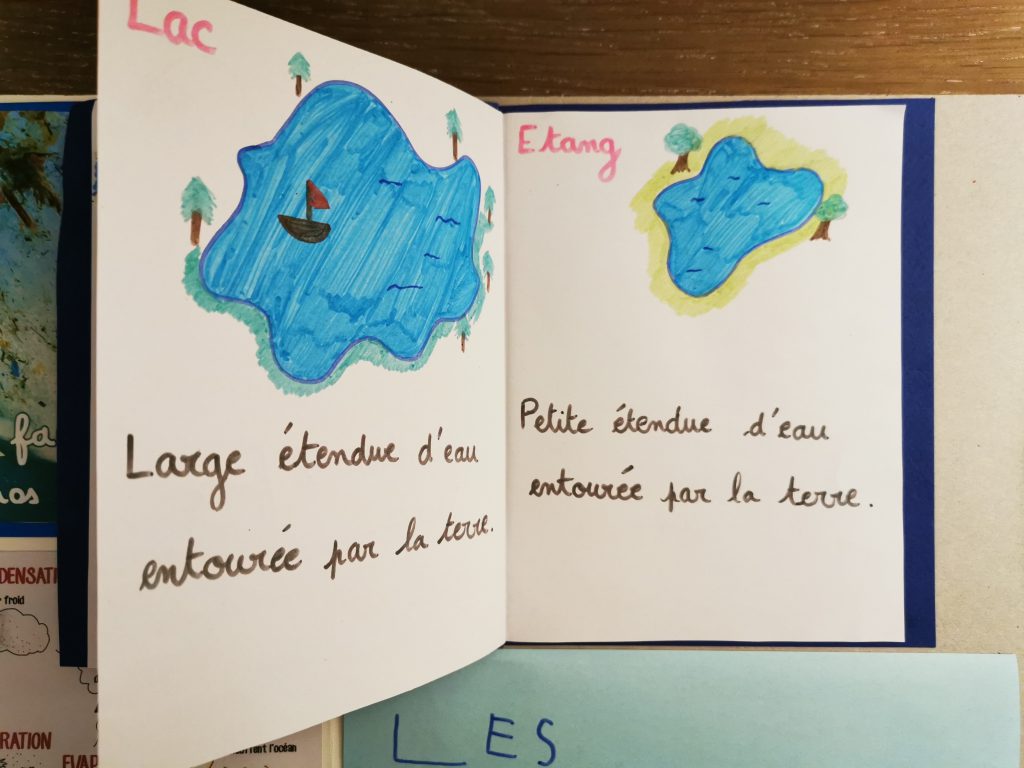 Lac
Large étendue d'eau
entourée par la terre.
Etang
Petite étendue d'eau
entourée par la terre.
LES
fa
froid
l'océan